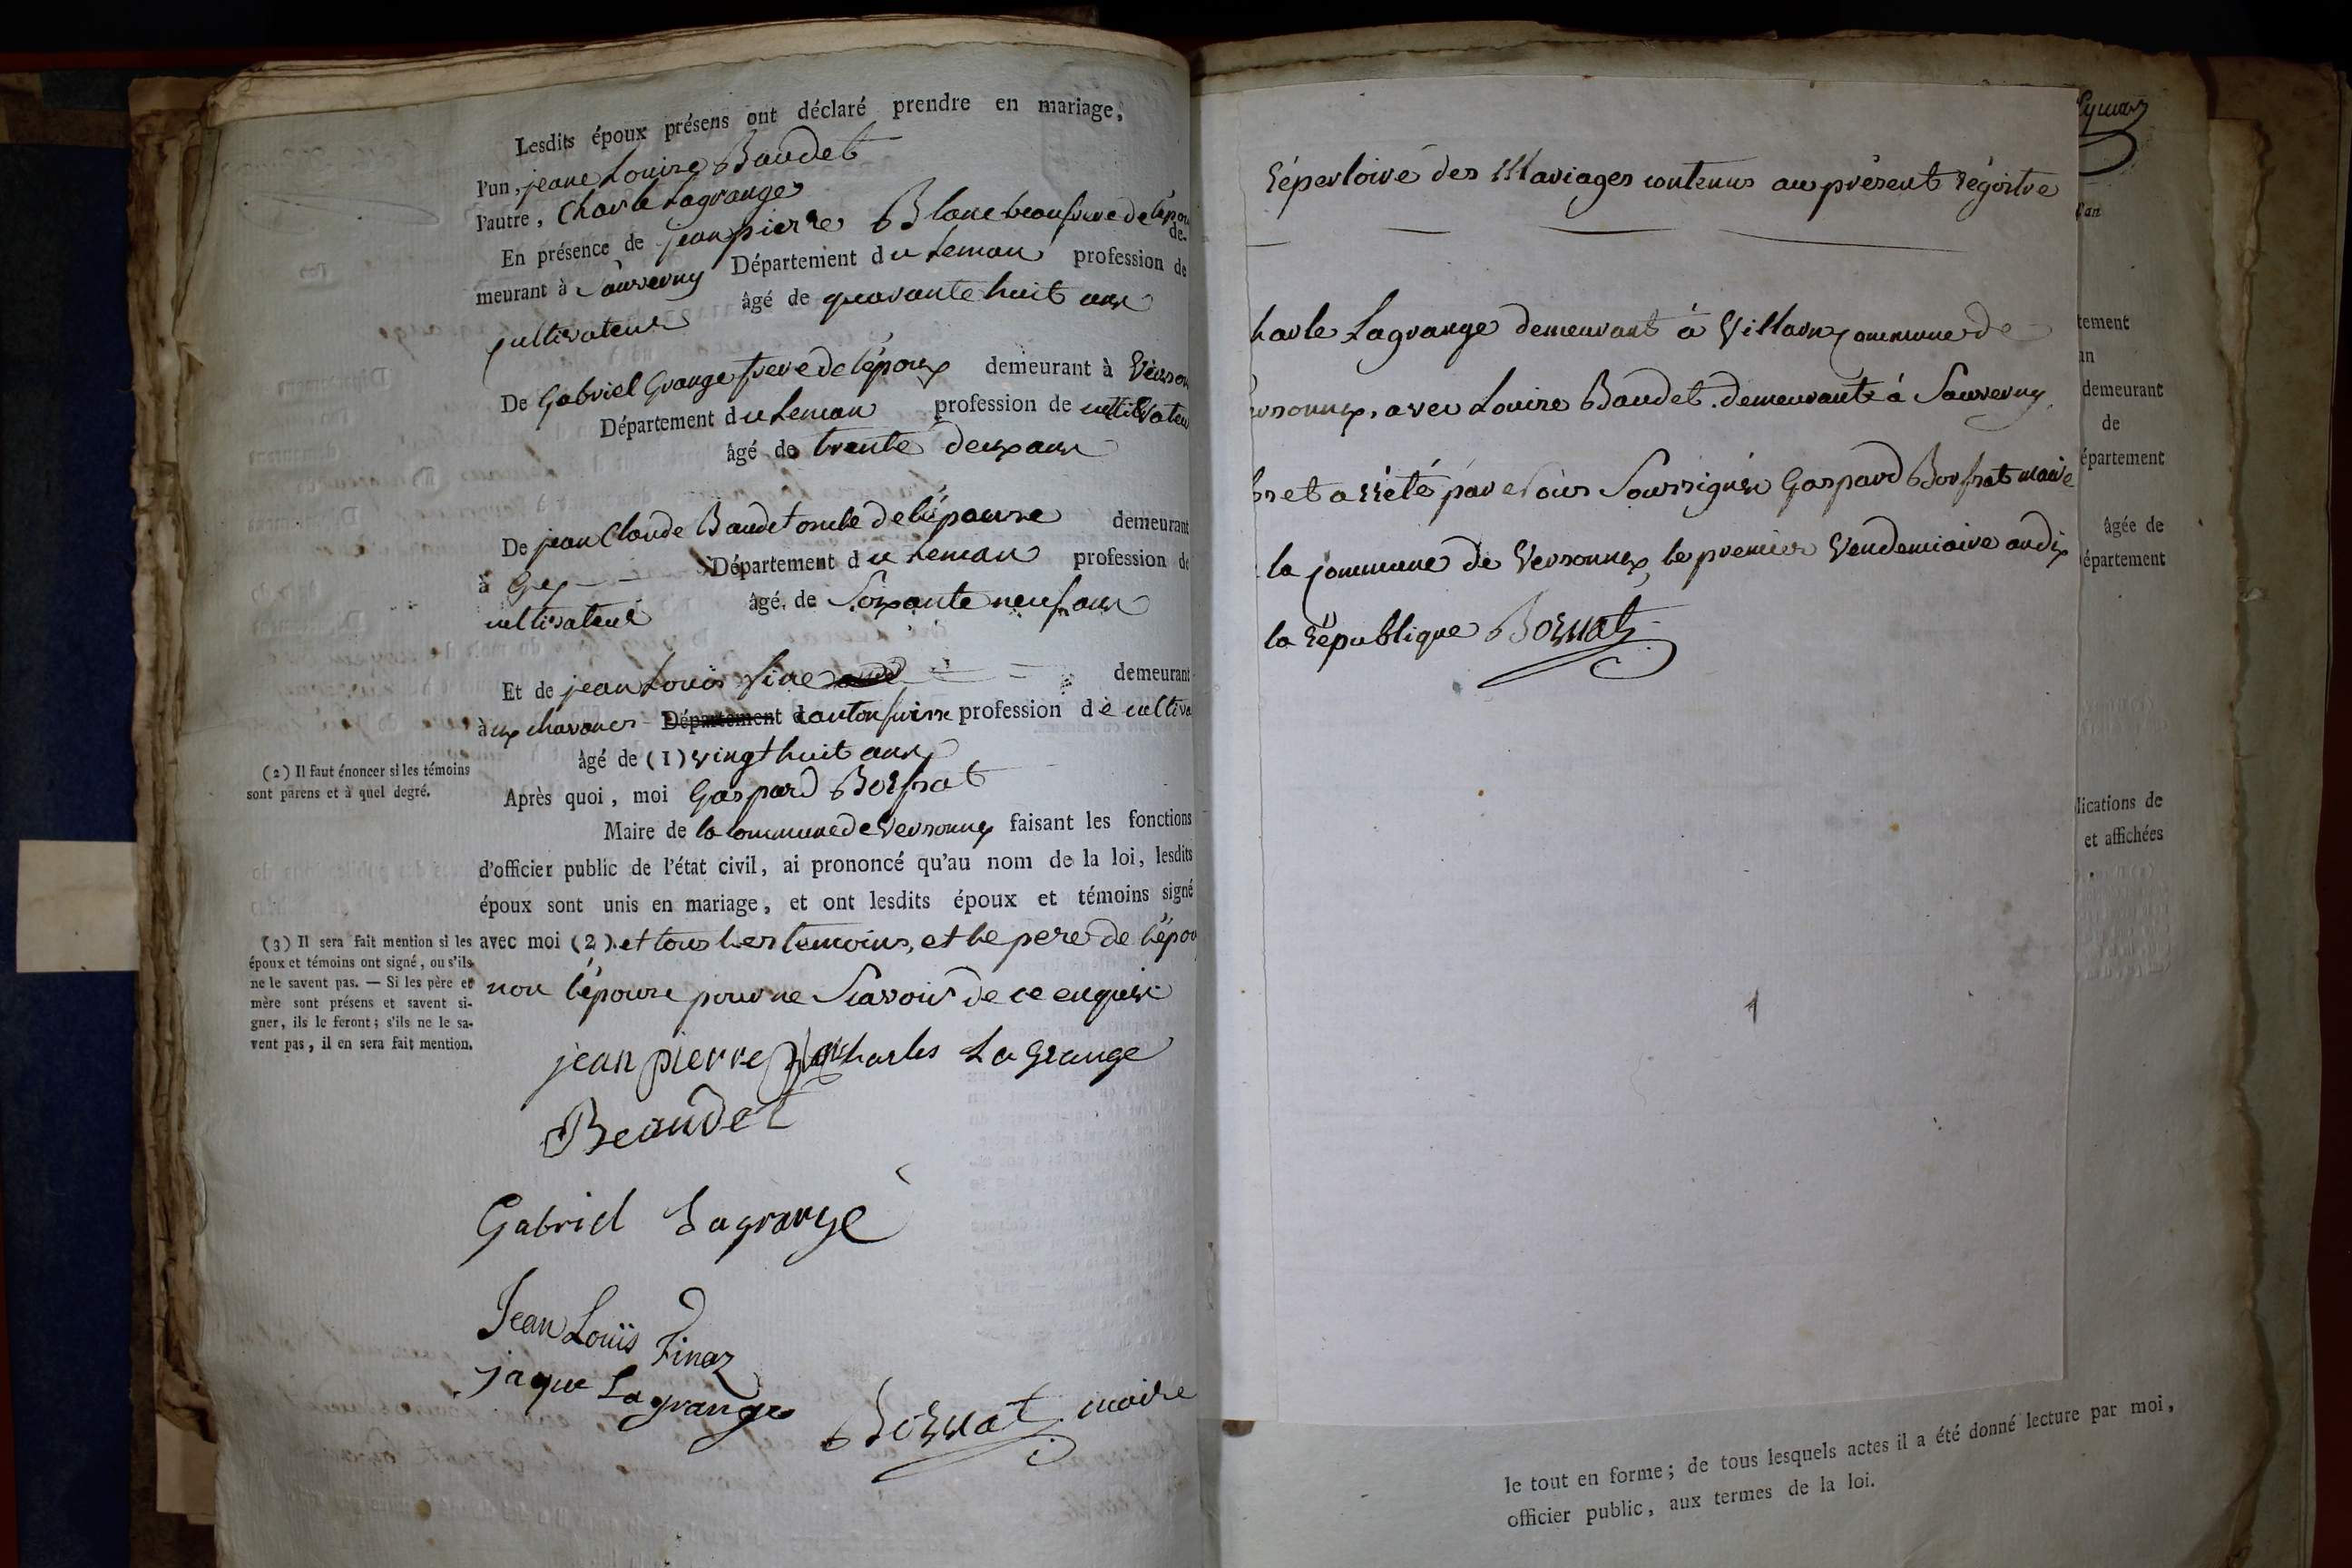 Lesdits époux présens ont déclaré prendre en mariage,
l'un, jeane Louise Baudet
l'autre, Charle Lagrange
En présence de jean pierre Blanc beaufrere de l'épou
de-
meurant à Sauverny Département du Leman profession de
cultivateur âgé de quarante huit ans
De Gabriel Grange frere de l'époux demeurant à Verson
Département du Leman profession de cultivateu
âgé de trente deux ans
De jean Claude Baudet oncle de l'épouse demeurant
à Gex Département du Leman profession de
cultivateur âgé de Soixante neuf ans
Et de jean Louis demeurant
à Département canton suisse profession de cultiva
âgé de (1) vingt huit ans
Après quoi, moi Gaspard Bossat
Maire de la commune de Versonnex faisant les fonctions
d'officier public de l'état civil, ai prononcé qu'au nom de la loi, lesdits
époux sont unis en mariage, et ont lesdits époux et témoins signé
avec moi (2) et tous les temoins, et le pere de l'épou
non l'épouse pour ne Scavoir de ce enquise
(2) Il faut énoncer si les témoins
sont parens et à quel degré.
(3) Il sera fait mention si les
époux et témoins ont signé, ou s'ils
ne le savent pas. — Si les père et
mère sont présens et savent si-
gner, ils le feront; s'ils ne le sa-
vent pas, il en sera fait mention.
jean pierre charles La Grange
Beaudet
Gabriel Lagrange
Jean Louïs Finaz
jaque Lagrange
maire
Répertoire des Mariages contenus au présent régistre
harle Lagrange demeurant à Villard commune de
ersonnex, avec Louise Baudet demeurante à Sauverny
os et arrêté par Nous Soussigné Gaspard Bossat maire
la commune de Versonnex, le premier Vendemiaire an dix
la république
1
l'an
tement
an
demeurant
de
épartement
âgée de
épartement
lications de
et affichées
le tout en forme; de tous lesquels actes il a été donné lecture par moi,
officier public, aux termes de la loi.